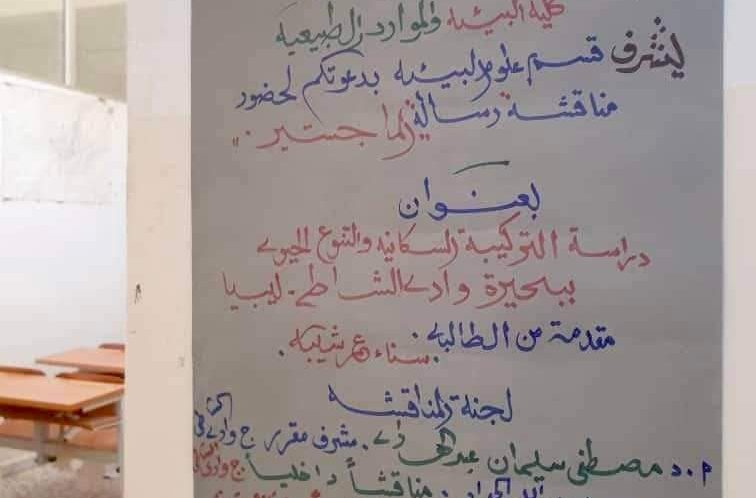 كلية البيئة والموارد الطبيعية
يتشرف قسم علوم البيئة بدعوتكم لحضور
مناقشة رسالة الماجستير
بعنوان
دراسة التركيبة السكانية والتنوع الحيوي
ببحيرة وادي الشاطئ. ليبيا
مقدمة من الطالبة.
سناء عمر شيبة.
لجنة المناقشة
م.د مصطفى سليمان عبدالحي. مشرف مقرر ج وادي
مناقشاً داخلياً ج وادي